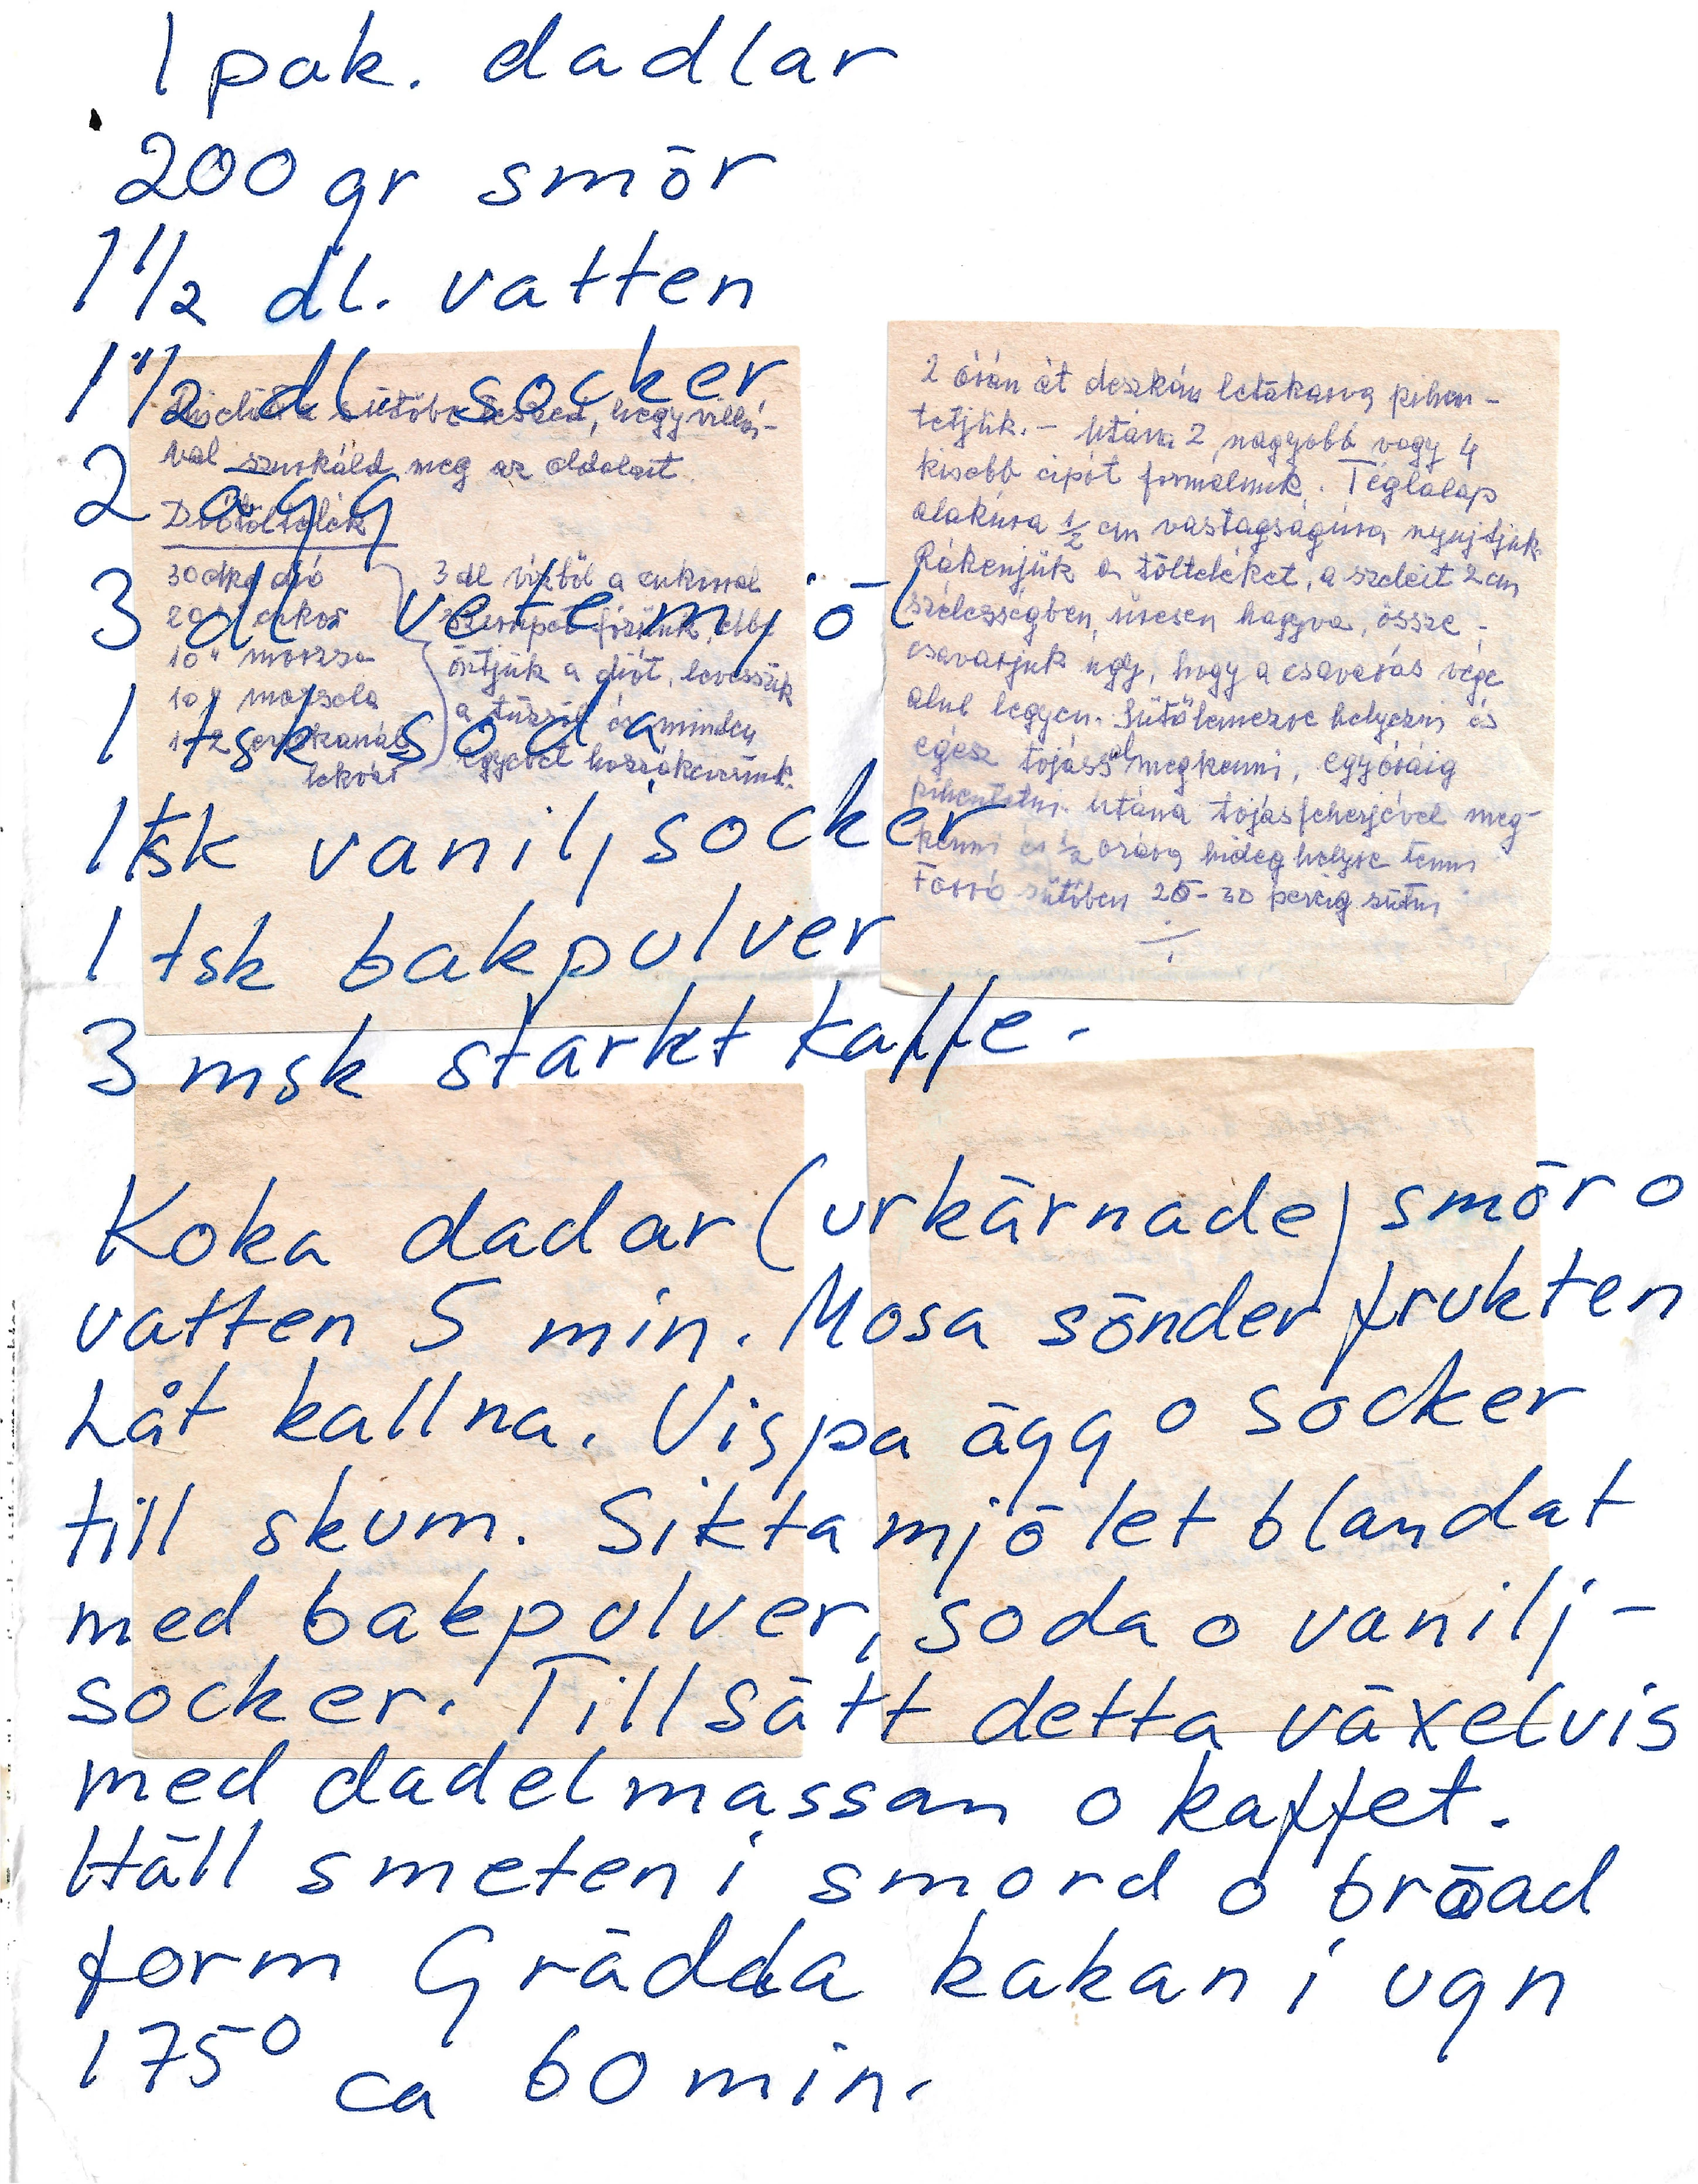 1 pak. dadlar
200 gr smör
1 1/2 dl. vatten
1 1/2 dl. socker
2 ägg
3 dl. vetemjöl
1 tsk soda
1 tsk vaniljsocker
1 tsk bakpulver
3 msk starkt kaffe.
Koka dadar (urkärnade) smör o
vatten 5 min. Mosa sönder frukten
Låt kallna. Vispa ägg o socker
till skum. Sikta mjölet blandat
med bakpulver, soda o vanilj-
socker. Tillsätt detta växelvis
med dadelmassan o kaffet.
Häll smeten i smord o bröad
form Grädda kakan i ugn
175° ca 60 min.
sütőbe teszed, hogy villá-
val szurkáld meg az oldalait
Diótöltelék
30 dkg dió
20 " cukor
10 " morzsa
10 " mazsola
1-2 evőkanál
lekvár
3 dl vízből a cukorral
szirupot főzünk, ebbe
öntjük a diót, levesszük
a tűzről és minden
egyebet hozzákeverünk.
2 órán át deszkán letakarva pihen-
tetjük. - Utána 2 nagyobb vagy 4
kisebb cipót formálunk. Téglalap
alakúra 1/2 cm vastagságúra nyujtjuk
Rákenjük a tölteléket, a szeleit 2 cm
szélességben üresen hagyva, össze-
csavarjuk úgy, hogy a csavarás vége
alul legyen. Sütőlemezre helyezni és
egész tojással megkenni, egy óráig
pihentetni. Utána tojásfehérjével meg-
kenni és 1/2 óráig hideg helyre tenni
Forró sütőben 25-30 percig sütni